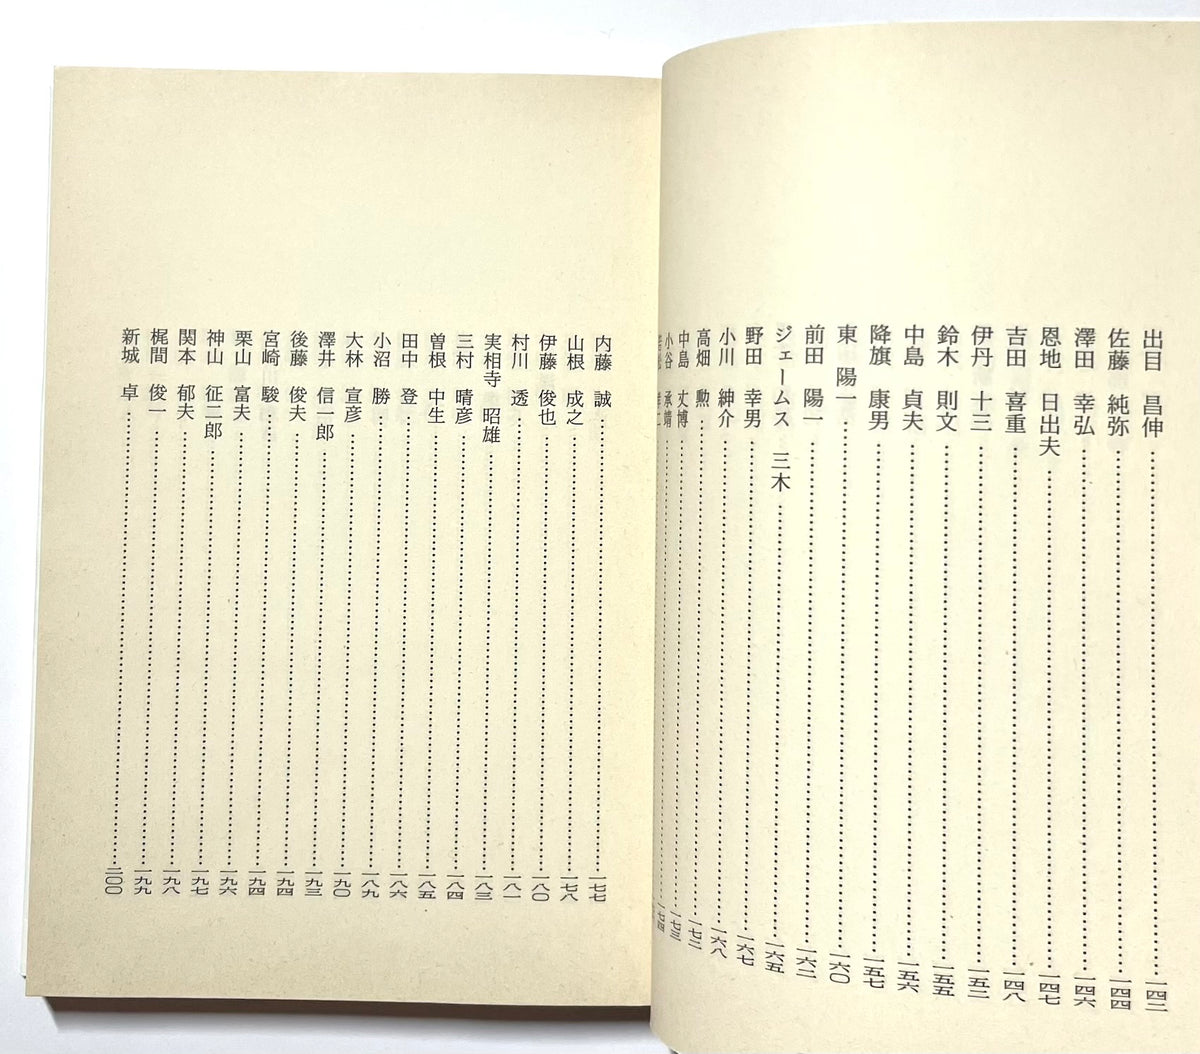 出目 昌伸……一四二
佐藤 純弥……一四四
澤田 幸弘……一四六
恩地 日出夫……一四七
吉田 喜重……一四八
伊丹 十三……一五二
鈴木 則文……一五五
中島 貞夫……一五六
降旗 康男……一五七
東 陽一……一六〇
前田 陽一……一六二
ジェームス 三木……一六五
野田 幸男……一六七
小川 紳介……一六八
高畑 勲……一七二
中島 丈博……一七三
小谷 承靖……一七四
内藤 誠……一七七
山根 成之……一七八
伊藤 俊也……一八〇
村川 透……一八一
実相寺 昭雄……一八三
三村 晴彦……一八四
曽根 中生……一八五
田中 登……一八六
小沼 勝……一八九
大林 宣彦……一九〇
澤井 信一郎……一九三
後藤 俊夫……一九四
宮崎 駿……一九四
栗山 富夫……一九六
神山 征二郎……一九七
関本 郁夫……一九八
梶間 俊一……一九九
新城 卓……二〇〇